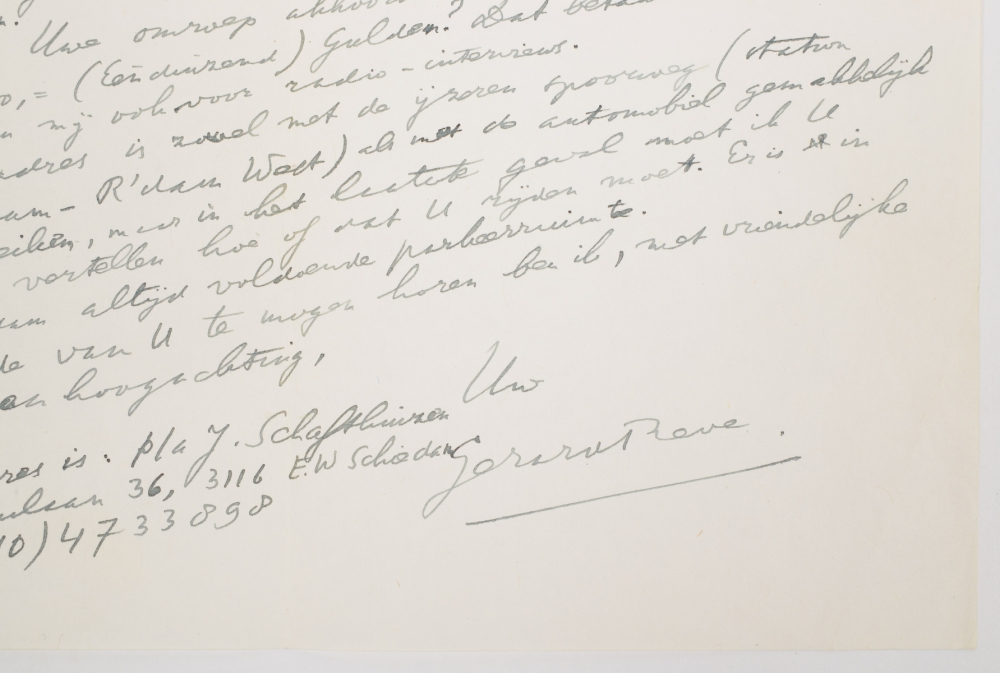 Uwe omroep akkoo
0,= (Eénduizend) Gulden? Dat betaa
n mij ook voor radio-interviews.
adres is zowel met de ijzeren spoorweg (station
am - R'dam West) als met de automobiel gemakkelijk
eiken, maar in het laatste geval moet ik U
vertellen hoe of dat U rijden moet. Er is in
am altijd voldoende parkeerruimte.
de van U te mogen horen ben ik, met vriendelijke
en hoogachting,
Uw
Gerard Reve.
res is: p/a J. Schafthuizen
laan 36, 3116 EW Schiedam
10) 4733898